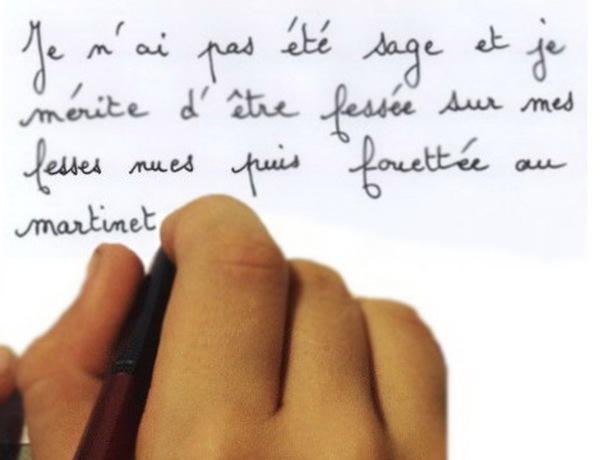 Je n'ai pas été sage et je
mérite d'être fessée sur mes
fesses nues puis fouettée au
martinet